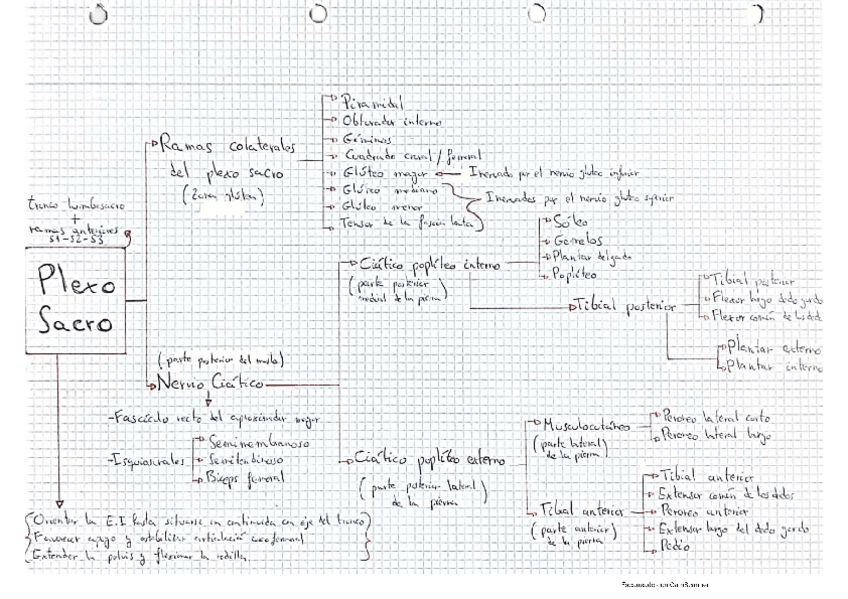 Piramidal
Obturador interno
Géminos
Cuadrado crural / femoral
Ramas colaterales
del plexo sacro
(zona glútea)
Glúteo mayor Inervado por el nervio glúteo inferior
Glúteo mediano
Inervados por el nervio glúteo superior
Glúteo menor
Tensor de la fascia lata
tronco lumbosacro
+
ramas anteriores
S1-S2-S3
Plexo
Sacro
Sóleo
Gemelos
Plantar delgado
Poplíteo
Ciático poplíteo interno
(parte posterior
de la pierna)
Tibial posterior
Tibial posterior
Flexor largo dedo gordo
Flexor común de los ded
Plantar externo
Plantar interno
(parte posterior del muslo)
Nervio Ciático
-Fascículo recto del aproximador mayor
-Isquiosurales
Semimembranoso
Semitendinoso
Bíceps femoral
Ciático poplíteo externo
(parte posterior lateral)
de la pierna
Musculocutáneo
(parte lateral)
de la pierna
Peroneo lateral corto
Peroneo lateral largo
Tibial anterior
(parte anterior)
de la pierna
Tibial anterior
Extensor común de los dedos
Peroneo anterior
Extensor largo del dedo gordo
Pedio
Orientar la E.I para situarse en continuidad en eje del tronco
Favorecer apoyo y estabilizar articulación coxofemoral
Extender la pelvis y flexionar la rodilla